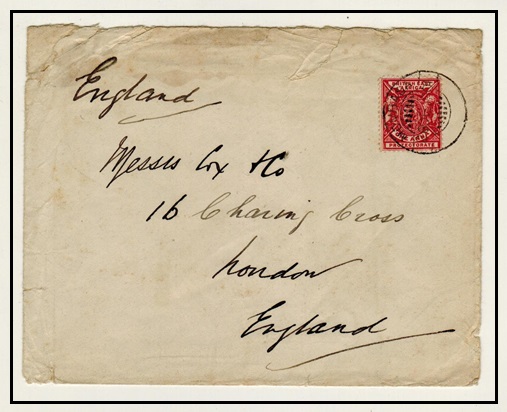 England
BRITISH EAST
AFRICA
ONE ANNA
PROTECTORATE
Messrs Cox & Co
16 Charing Cross
London
England